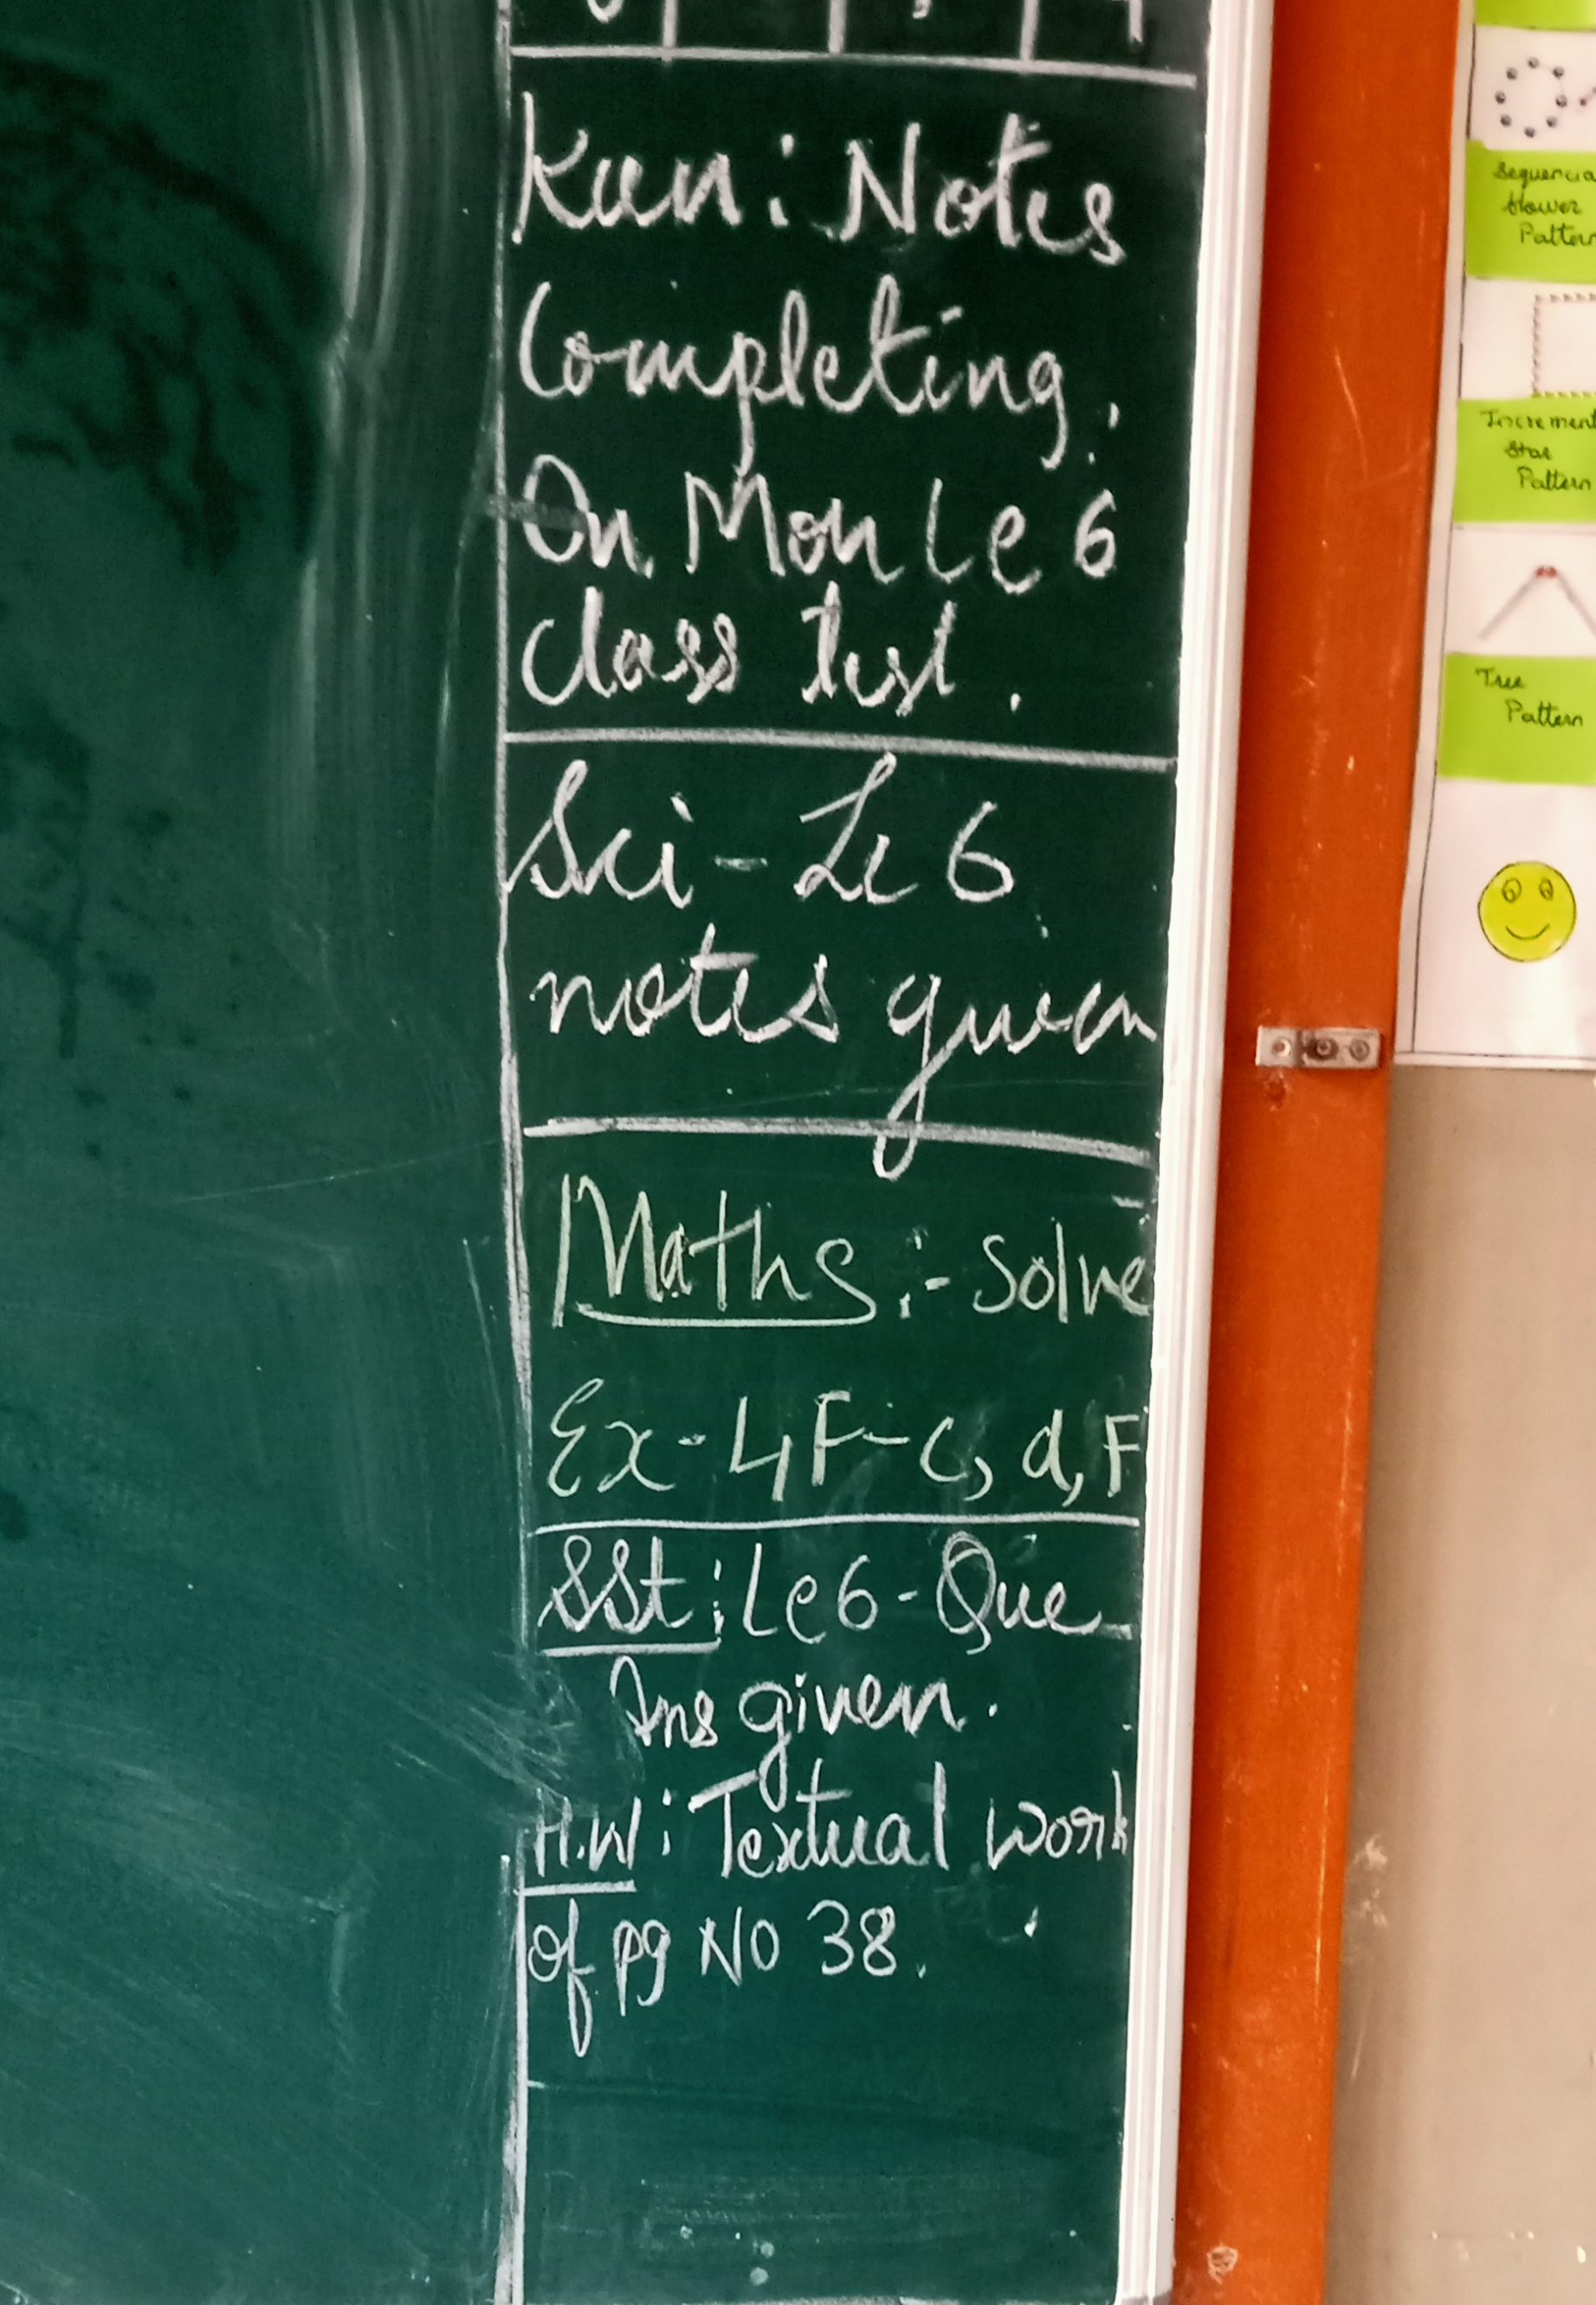 Kan: Notes
Completing.
On Mon Le 6
class test.
Sci - Le 6
notes given
Maths :- Solve
Ex - 4F - c, d, F
SSt: Le 6 - Que
Ans given.
H.W: Textual work
of pg No 38.
flower
Pattern
Star
Pattern
Tree
Pattern